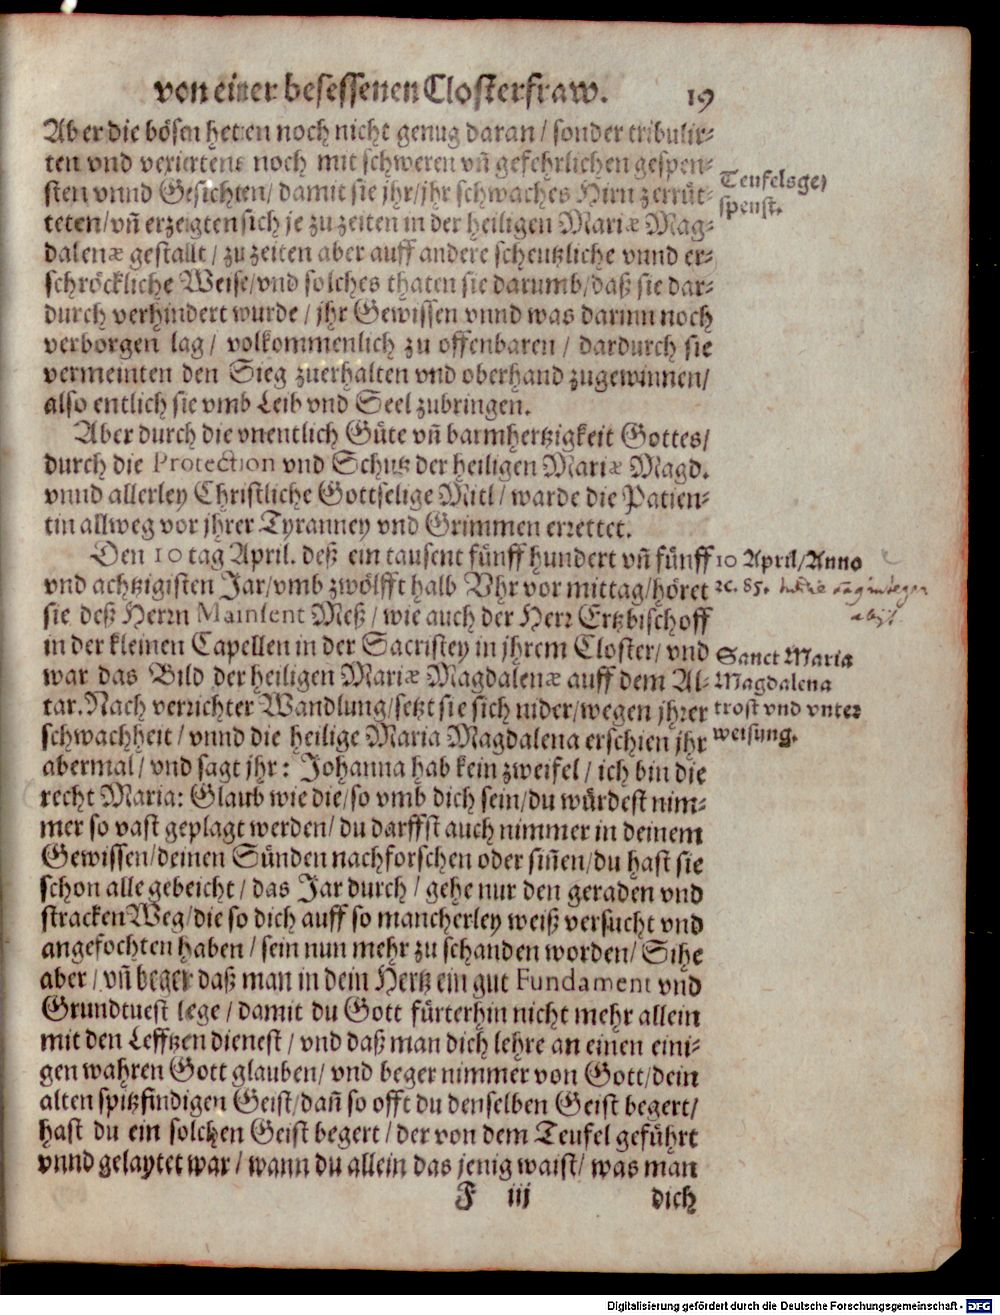 von einer besessenen Closterfraw. 19
Aber die bösen heten noch nicht genug daran / sonder tribulir⸗
ten vnd vexirtens noch mit schweren vñ gefehrlichen gespen⸗
sten vnnd Gesichten / damit sie jhr / jhr schwaches Hirn zerrüt⸗
teten / vñ erzeigten sich je zu zeiten in der heiligen Mariæ Mag⸗
dalenæ gestallt / zu zeiten aber auff andere scheutzliche vnnd er⸗
schröckliche Weise / vnd solches thaten sie darumb / daß sie dar⸗
durch verhindert wurde / jhr Gewissen vnnd was darinn noch
verborgen lag / volkommenlich zu offenbaren / dardurch sie
vermeinten den Sieg zuerhalten vnd oberhand zugewinnen /
also entlich sie vmb Leib vnd Seel zubringen.
Teufelsge⸗
spenst.
Aber durch die vnentlich Güte vñ barmhertzigkeit Gottes /
durch die Protection vnd Schutz der heiligen Mariæ Magd.
vnnd allerley Christliche Gottselige Mitl / warde die Patien⸗
tin allweg vor jhrer Tyranney vnd Grimmen errettet.
Den 10 tag April. deß ein tausent fünff hundert vñ fünff
vnd achtzigisten Jar / vmb zwölfft halb Vhr vor mittag / höret
sie deß Herrn Mainsent Meß / wie auch der Herr Ertzbischoff
in der kleinen Capellen in der Sacristey in jhrem Closter / vnd
war das Bild der heiligen Mariæ Magdalenæ auff dem Al⸗
tar. Nach verrichter Wandlung / setzt sie sich nider / wegen jhrer
schwachheit / vnnd die heilige Maria Magdalena erschien jhr
abermal / vnd sagt jhr: Johanna hab kein zweifel / ich bin die
recht Maria: Glaub wie die / so vmb dich sein / du würdest nim⸗
mer so vast geplagt werden / du darffst auch nimmer in deinem
Gewissen / deinen Sünden nachforschen oder siñen / du hast sie
schon alle gebeicht / das Jar durch / gehe nur den geraden vnd
stracken Weg / die so dich auff so mancherley weiß versucht vnd
angefochten haben / sein nun mehr zu schanden worden / Sihe
aber / vñ beger daß man in dein Hertz ein gut Fundament vnd
Grundtuest lege / damit du Gott fürterhin nicht mehr allein
mit den Lefftzen dienest / vnd daß man dich lehre an einen eini⸗
gen wahren Gott glauben / vnd beger nimmer von Gott / dein
alten spitzfindigen Geist / dañ so offt du denselben Geist begert /
hast du ein solchen Geist begert / der von dem Teufel geführt
vnnd gelaytet war / wann du allein das jenig waist / was man
10 April / Anno
ꝛc. 85.
Sanct Maria
Magdalena
trost vnd vnter
weisung.
F iii dich
Digitalisierung gefördert durch die Deutsche Forschungsgemeinschaft - DFG